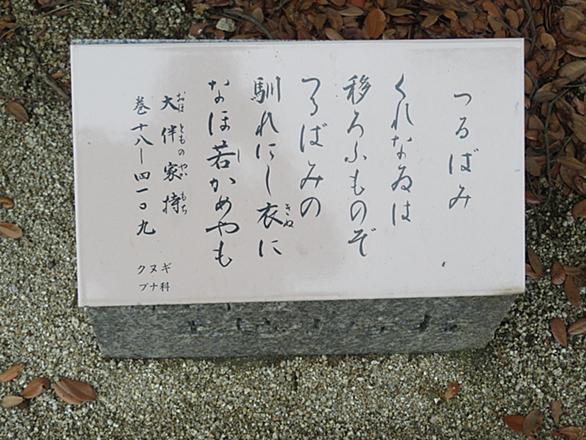 つるばみ
くれなゐは
移ろふものぞ
つるばみの
馴れにし衣に
きぬ
なほ若かめやも
し
大伴家持
おほとものやかもち
巻十八―四一〇九
クヌギ
ブナ科